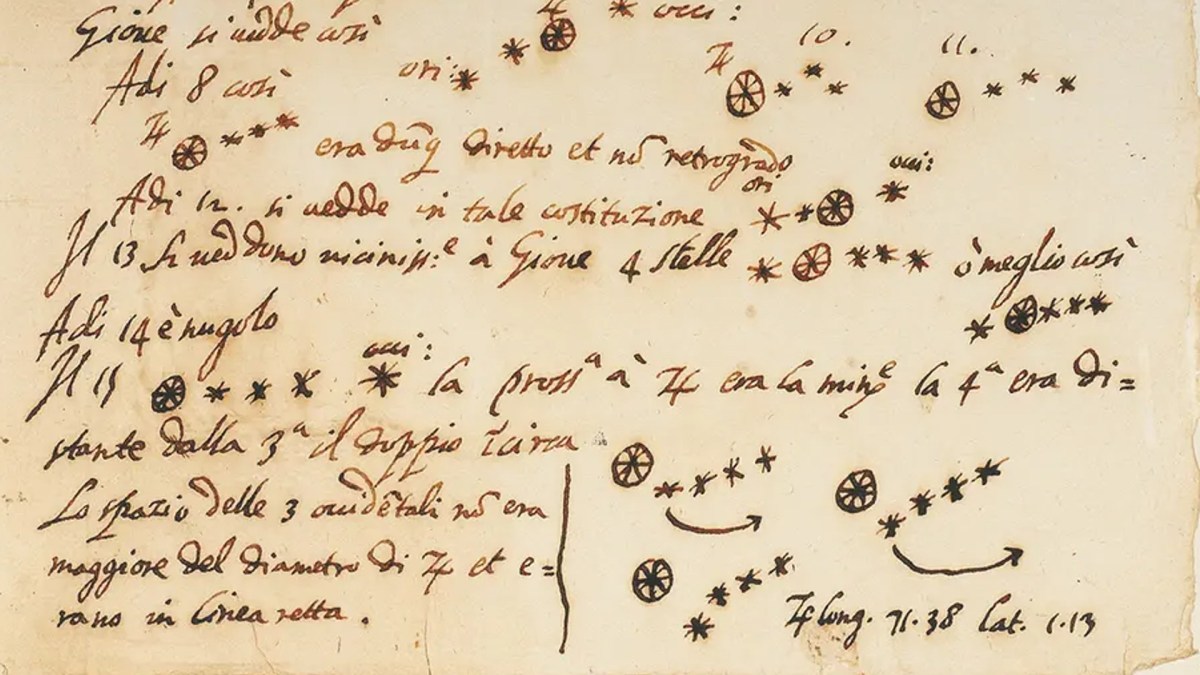 Gioue si uedde così ♃ occi:
Adi 8 così ori: ♃ 10. 11.
♃ era dūq diretto et nō retrogrado
Adi 12. si uedde in tale costituzione ori occi:
Il 13 si ueddono uiciniss.e à Gioue 4 stelle ò meglio così
Adi 14 è nugolo
Il 15 occi: la prossa à ♃ era la mine la 4a era di=
stante dalla 3a il doppio ī circa
Lo spazio delle 3 occidētali nō era
maggiore del diametro di ♃ et e=
rano in linea retta.
♃ long. 71.38 lat. 1.13